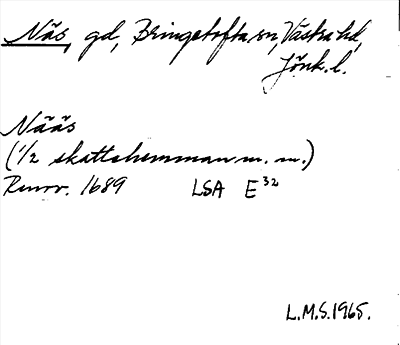 Näs, gd, Bringetofta sn, Västra hd,
Jönk. l.
Nääs
(1/2 skattehemman m. m.)
Renov. 1689 LSA E³²
L.M.S. 1965.